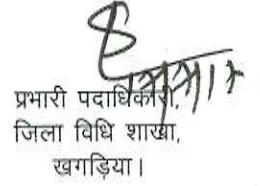 प्रभारी पदाधिकारी,
जिला विधि शाखा,
खगड़िया।